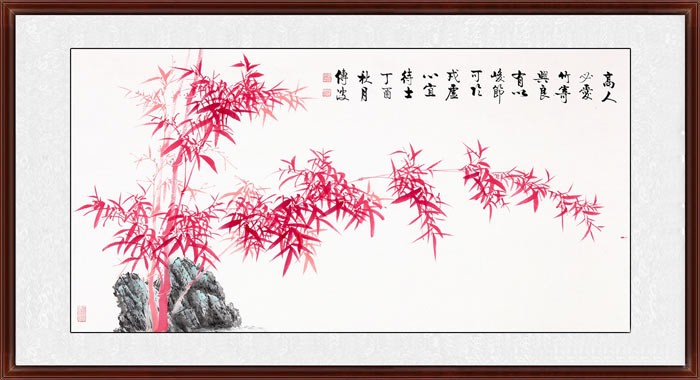 高人
必愛
竹寄
興良
有以
峻節
可臨
戎虛
心宜
待士
丁酉
秋月
傳波